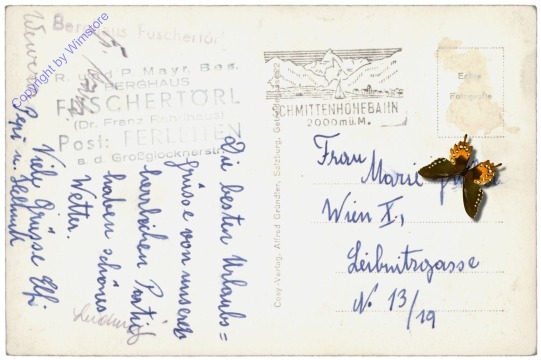 Berghaus Fuschertörl
R. und P. Mayr, Bes.
BERGHAUS
FUSCHERTÖRL
(Dr. Franz Rehrlhaus)
Post: FERLEITEN
a. d. Großglocknerstr.
Die besten Urlaubs=
grüsse von unserer
herrlichen Partie
haben schönes
Wetter.
Viele Grüsse Elfi
Pepi u. Helmuth
Ludwig
Cosy-Verlag, Alfred Gründler, Salzburg, Getreidegasse 22
SCHMITTENHÖHEBAHN
2000 m ü. M.
Echte
Fotografie
Frau
Marie
Wien X,
Leibnitzgasse
No 13/19
Copyright by Wimstore